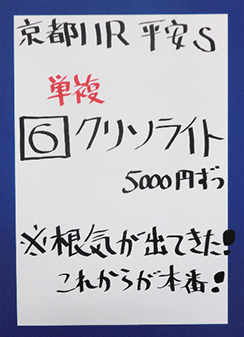 京都11R 平安S
単複
6 クリソライト
5000円ずつ
※根気が出てきた!
これからが本番!